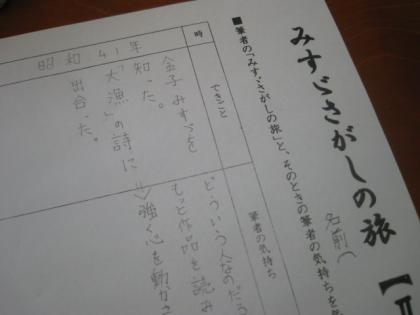 みすゞさがしの旅【Ⅱ
名前（
■筆者の「みすゞさがしの旅」と、そのときの筆者の気持ちを
時
できごと
筆者の気持ち
昭和41年
金子みすゞを
知った。
「大漁」の詩に
出合った。
どういう人なのだろ
もっと作品を読み
⇒強く心を動か